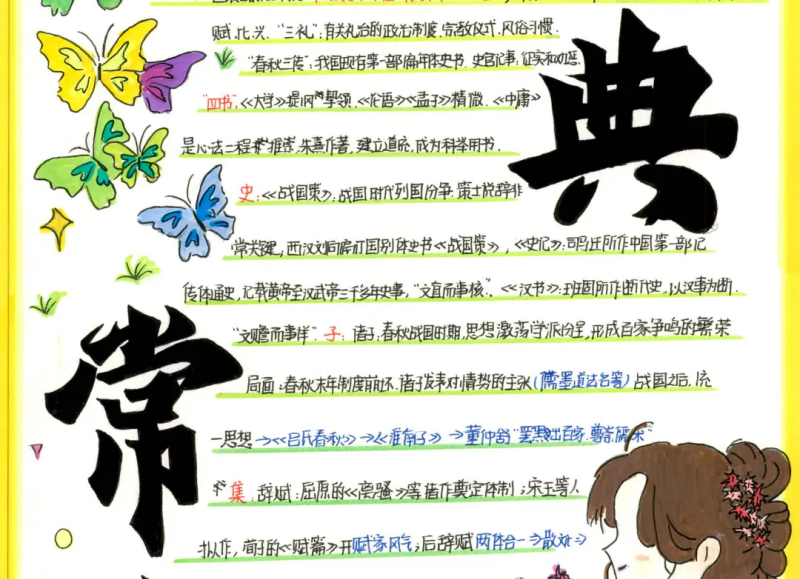 赋、比、兴.“三礼”:有关礼治的政治制度,宗教仪式,风俗习惯.
“春秋三传”:我国现存第一部编年体史书.史官记事,征实和劝惩.
“四书”,《大学》提纲挈领.《论语》《孟子》精微.《中庸》
是心法二程推崇,朱熹作著,建立道统,成为科举用书.
史:《战国策》:战国时代列国纷争.策士说辞非
常关键,西汉刘向编订国别体史书《战国策》,《史记》:司马迁所作中国第一部纪
传体通史,记载黄帝至汉武帝三千多年史事,“文直而事核”.《汉书》:班固所作断代史,以汉事为断.
“文赡而事详” 子:诸子:春秋战国时期,思想激荡学派纷呈,形成百家争鸣的繁荣
局面:春秋末年制度崩坏.诸子发表对情势的主张(儒墨道法名等)战国之后,统
一思想→《吕氏春秋》→《淮南子》→董仲舒“罢黜百家.尊崇儒术”
集.辞赋:屈原的《离骚》等诸作奠定体制;宋玉等人
扩作,荀子的《赋篇》开赋家风气;后辞赋两体合一→散文→
典
常